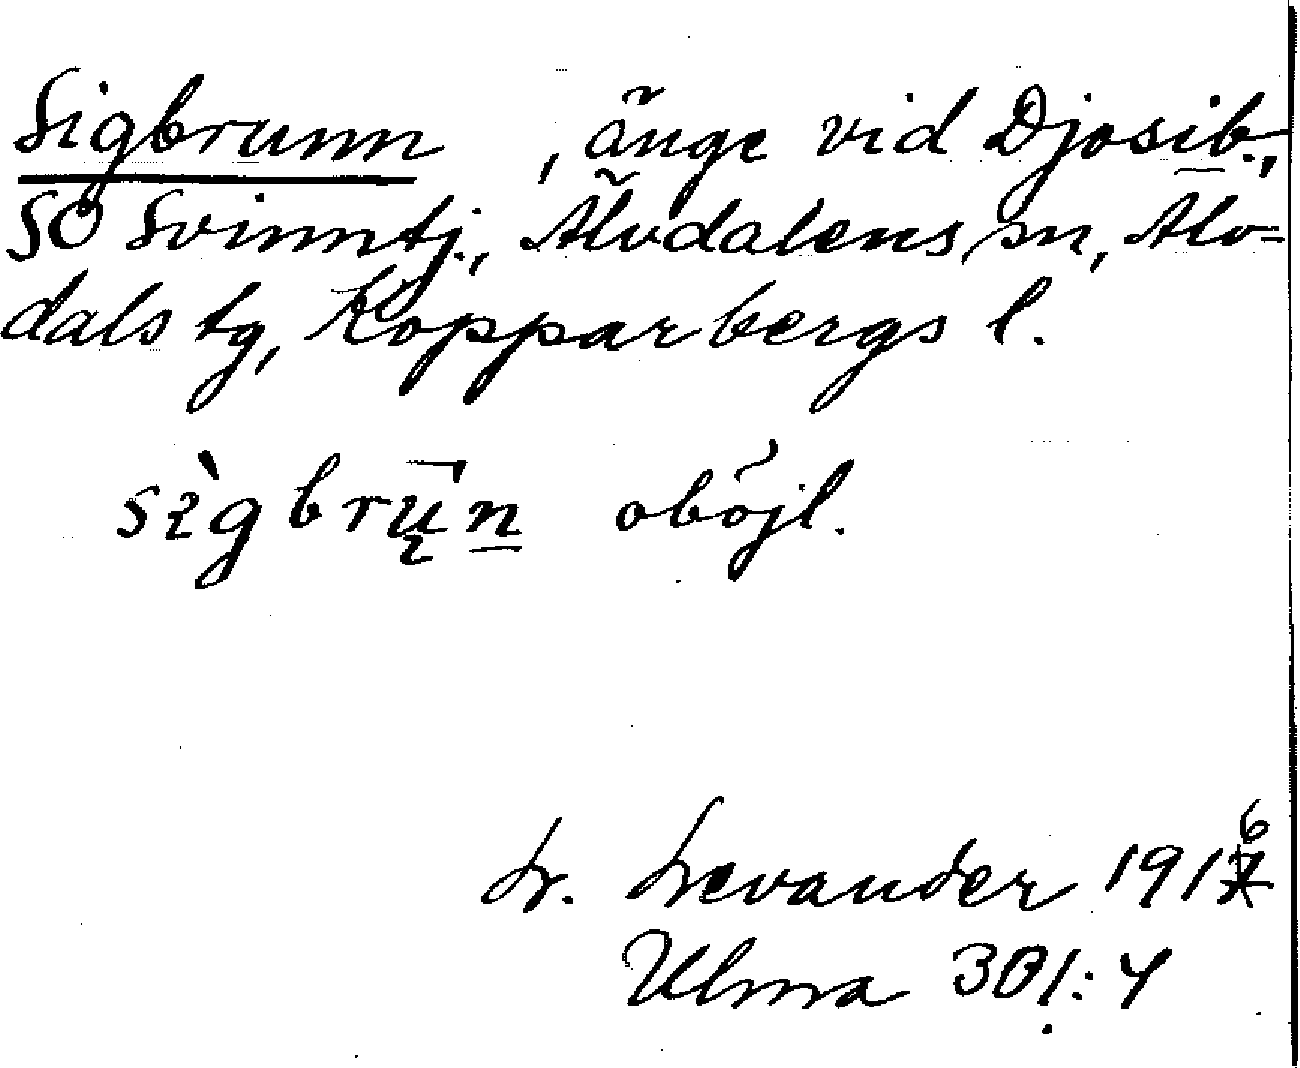 Sigbrunn , änge vid Djosib.,
SO Svinntj., Älvdalens sn, Älv-
dals tg, Kopparbergs l.
sìgbrūn oböjl.
L. Levander 1916
Ulma 301:4